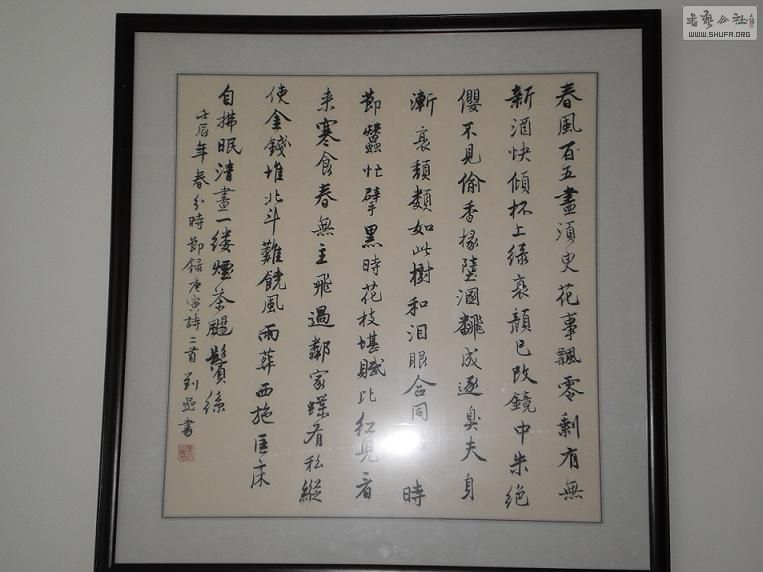 春風百五盡須臾花事飄零剩有無
新酒快傾杯上綠衰顏已改鏡中朱絕
纓不見偷香椽墮溷飜成逐臭夫身
漸衰頹類如此樹和泪眼合同時
節蠶忙擘黑時花枝堪賦比紅兒看
来寒食春無主飛過鄰家蝶有私縱
使金錢堆北斗難饒風雨葬西施匡床
自拂眠清晝一縷煙茶颺鬢絲
壬辰年春分時節錄唐寅詩二首劉書
書藝公社
WWW.SHUFA.ORG